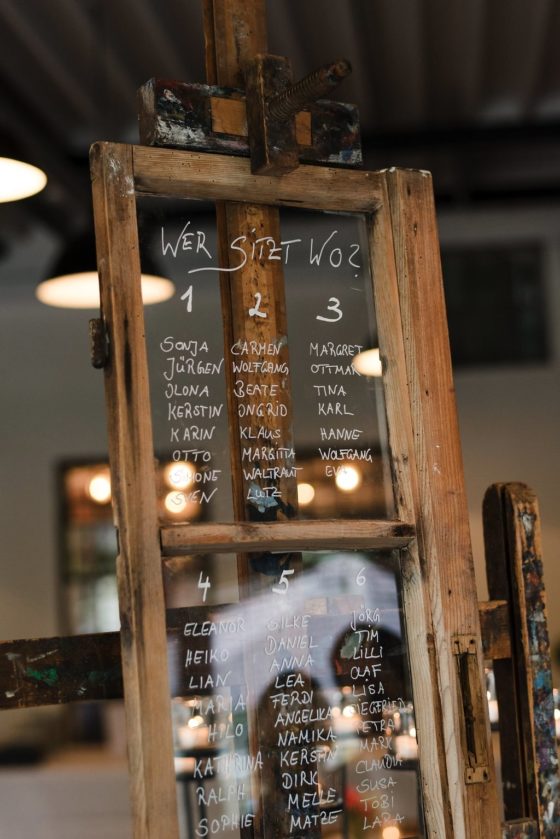 WER SITZT WO?
1
SONJA
JÜRGEN
ILONA
KERSTIN
KARIN
OTTO
SIMONE
SVEN
2
CARMEN
WOLFGANG
BEATE
INGRID
KLAUS
MARGITTA
WALTRAUT
LUTZ
3
MARGRET
OTTMAR
TINA
KARL
HANNE
WOLFGANG
4
ELEANOR
HEIKO
LIAN
MARIA
HILO
KATHRINA
RALPH
SOPHIE
5
SILKE
DANIEL
ANNA
LEA
FERDI
ANGELIKA
NAMIKA
KERSTIN
DIRK
MELLE
MATZE
6
JÖRG
TIM
LILLI
OLAF
LISA
SIEGFRIED
PETRA
MARK
CLAUDIA
SUSA
TOBI
LARA